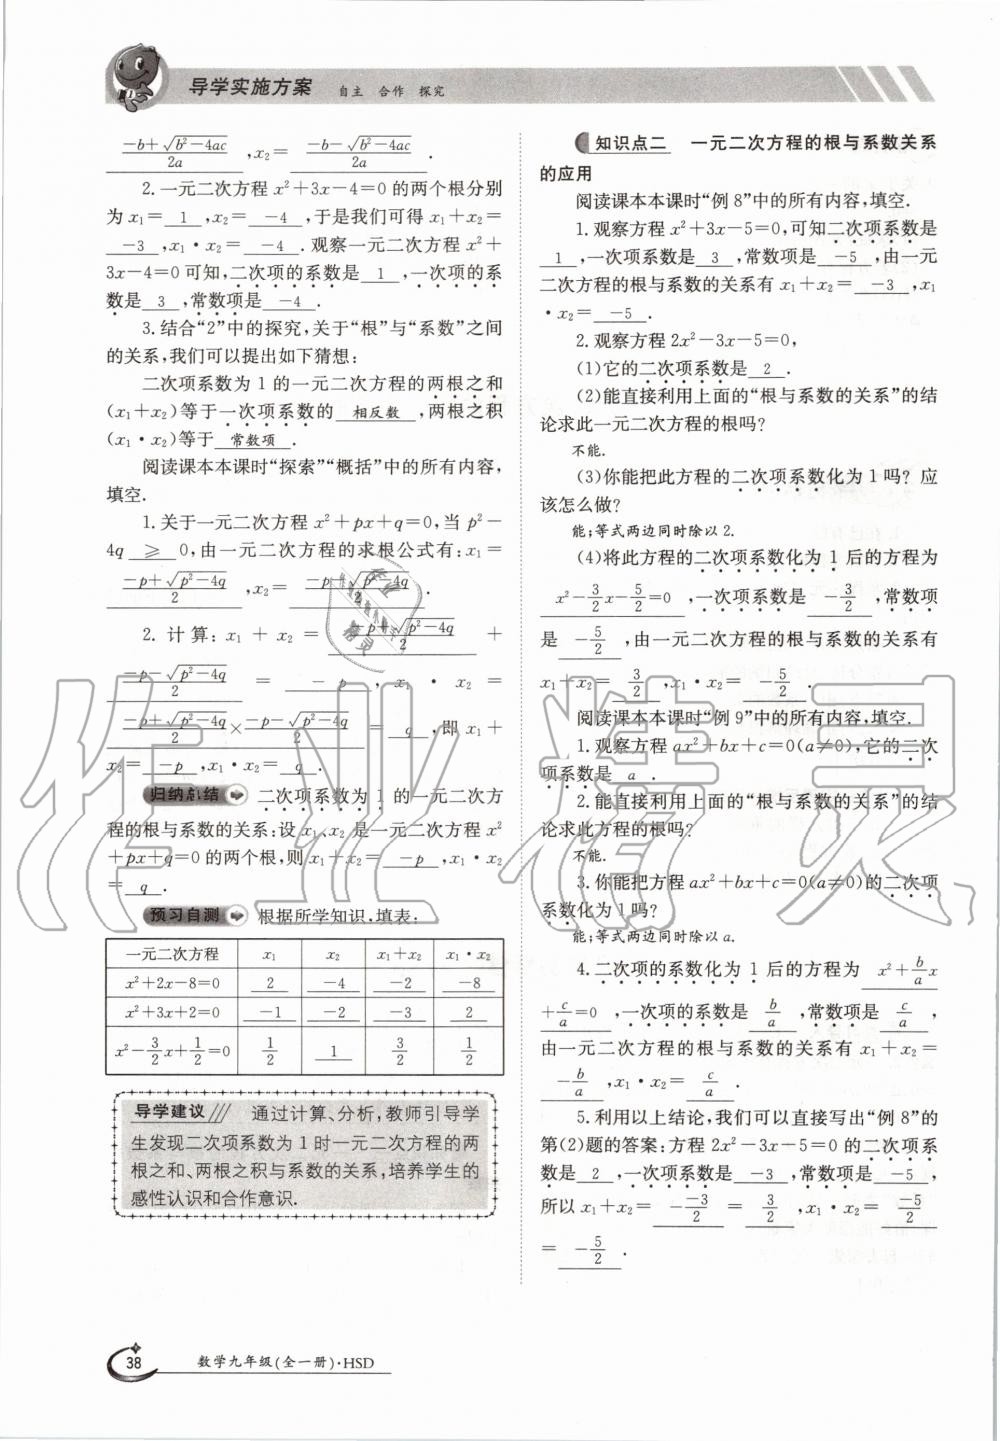 导学实施方案 自主 合作 探究
(-b+√(b²-4ac))/2a ,x₂= (-b-√(b²-4ac))/2a .
2.一元二次方程 x²+3x-4=0 的两个根分别
为 x₁= 1 ,x₂= -4 ,于是我们可得 x₁+x₂=
-3 ,x₁·x₂= -4 .观察一元二次方程 x²+
3x-4=0 可知,二次项的系数是 1 ,一次项的系
数是 3 ,常数项是 -4 .
3.结合“2”中的探究,关于“根”与“系数”之间
的关系,我们可以提出如下猜想:
二次项系数为 1 的一元二次方程的两根之和
(x₁+x₂)等于一次项系数的 相反数 ,两根之积
(x₁·x₂)等于 常数项 .
阅读课本本课时“探索”“概括”中的所有内容,
填空.
1.关于一元二次方程 x²+px+q=0,当 p²-
4q ≥ 0,由一元二次方程的求根公式有:x₁=
(-p+√(p²-4q))/2 ,x₂= (-p-√(p²-4q))/2 .
2.计算:x₁+x₂= (-p+√(p²-4q))/2 +
(-p-√(p²-4q))/2 = -p ,x₁·x₂=
(-p+√(p²-4q))/2 × (-p-√(p²-4q))/2 = q ,即 x₁+
x₂= -p ,x₁·x₂= q .
归纳总结 二次项系数为 1 的一元二次方
程的根与系数的关系:设 x₁、x₂ 是一元二次方程 x²
+px+q=0 的两个根,则 x₁+x₂= -p ,x₁·x₂
= q .
预习自测 根据所学知识,填表:
一元二次方程 x₁ x₂ x₁+x₂ x₁·x₂
x²+2x-8=0 2 -4 -2 -8
x²+3x+2=0 -1 -2 -3 2
x²-3/2x+1/2=0 1/2 1 3/2 1/2
导学建议 通过计算、分析,教师引导学
生发现二次项系数为 1 时一元二次方程的两
根之和、两根之积与系数的关系,培养学生的
感性认识和合作意识.
知识点二 一元二次方程的根与系数关系
的应用
阅读课本本课时“例 8”中的所有内容,填空.
1.观察方程 x²+3x-5=0,可知二次项系数是
1 ,一次项系数是 3 ,常数项是 -5 ,由一元
二次方程的根与系数的关系有 x₁+x₂= -3 ,x₁
·x₂= -5 .
2.观察方程 2x²-3x-5=0,
(1)它的二次项系数是 2 .
(2)能直接利用上面的“根与系数的关系”的结
论求此一元二次方程的根吗?
不能.
(3)你能把此方程的二次项系数化为 1 吗? 应
该怎么做?
能;等式两边同时除以 2.
(4)将此方程的二次项系数化为 1 后的方程为
x²-3/2x-5/2=0 ,一次项系数是 -3/2 ,常数项
是 -5/2 ,由一元二次方程的根与系数的关系有
x₁+x₂= 3/2 ,x₁·x₂= -5/2 .
阅读课本本课时“例 9”中的所有内容,填空.
1.观察方程 ax²+bx+c=0(a≠0),它的二次
项系数是 a .
2.能直接利用上面的“根与系数的关系”的结
论求此方程的根吗?
不能.
3.你能把方程 ax²+bx+c=0(a≠0)的二次项
系数化为 1 吗?
能;等式两边同时除以 a.
4.二次项的系数化为 1 后的方程为 x²+b/a x
+c/a=0 ,一次项的系数是 b/a ,常数项是 c/a ,
由一元二次方程的根与系数的关系有 x₁+x₂=
-b/a ,x₁·x₂= c/a .
5.利用以上结论,我们可以直接写出“例 8”的
第(2)题的答案:方程 2x²-3x-5=0 的二次项系
数是 2 ,一次项系数是 -3 ,常数项是 -5 ,
所以 x₁+x₂= -(-3)/2 = 3/2 ,x₁·x₂= (-5)/2
= -5/2 .
38 数学九年级(全一册)·HSD
作业精灵